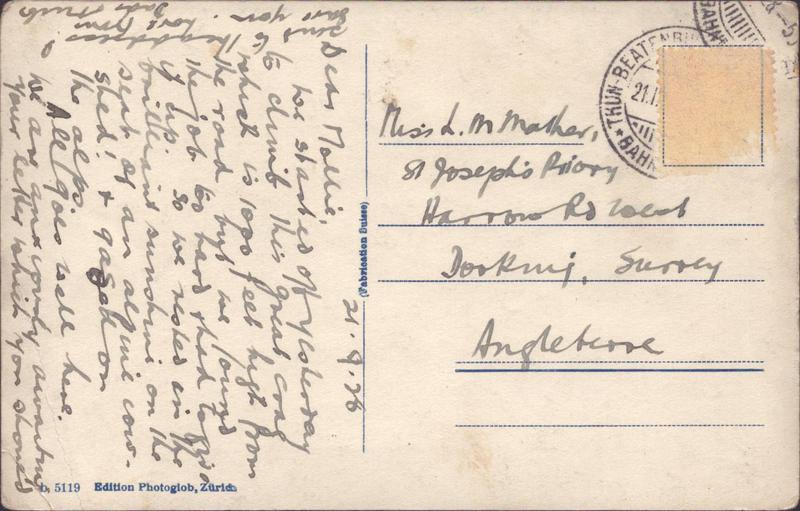 Dear Mollie,
We started off yesterday
to climb this great crag
which is 1000 feet high from
the road but we found
the job too hard & had to give
it up. So we rested in the
brilliant sunshine on the
seat of an alpine cow-
shed & gazed on
the alps.
All goes well here.
We are anxiously awaiting
your letter which you
send to the address
gave you. love from
21.9.26
Miss L. M Mather,
St Joseph's Priory
Harrow Rd West
Dorking, Surrey
Angleterre
(Fabrication Suisse)
THUN-BEATENBU
21.I
BAHN
b. 5119 Edition Photoglob, Zürich